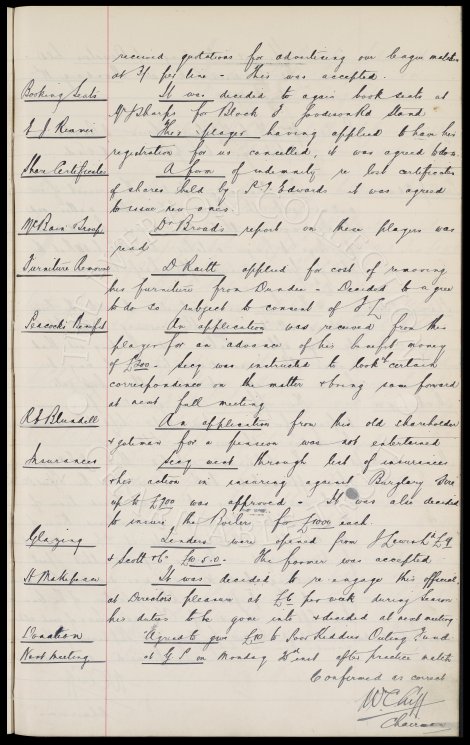 received quotations for advertising our league matches
at per line - This was accepted.
Booking Seats It was decided to again book seats at
Mr Sharps for Block J Goodison Rd Stand
This player having applied to have his
registration for us cancelled, it was agreed to do so.
Share Certificates A form of indemnity re lost certificates
of shares held by Edwards it was agreed
to issue new ones.
McBain Troup Dr Broads report on these players was
read
Furniture Removal D Raitt applied for cost of removing
his furniture from Dundee - Decided to agree
to do so subject to consent of F L
Peacock's Benefit An application was received from this
player for an advance of his benefit money
of £300 - Secy was instructed to look certain
correspondence on the matter & bring same forward
at next full meeting
Rd Blundell An application from this old shareholder
& gateman for a pension was not entertained
Insurances Secy went through list of insurances
& his action in insuring against Burglary
up to £700 was approved - It was also decided
to insure the Boilers for £1000 each.
Glazing Tenders were opened from J Lewis Ld £9
& Scott & Co £10.5.0. The former was accepted
It was decided to re engage this official
at Directors pleasure at £6 per week during season
his duties to be gone into & decided at next meeting
Donation Agreed to give £10 to Poor Kiddies Outing Fund
Next Meeting at G P on Monday inst after practice match
Confirmed as correct
W C Cuff
Chairman